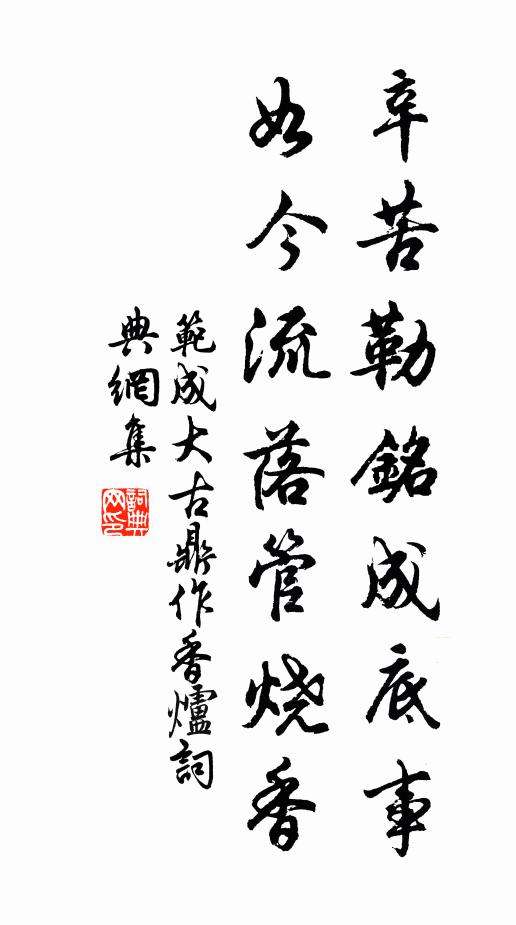 辛苦勒銘成底事
如今流落管烧香
範成大古鼎作香爐詞
典網集
詞典网印